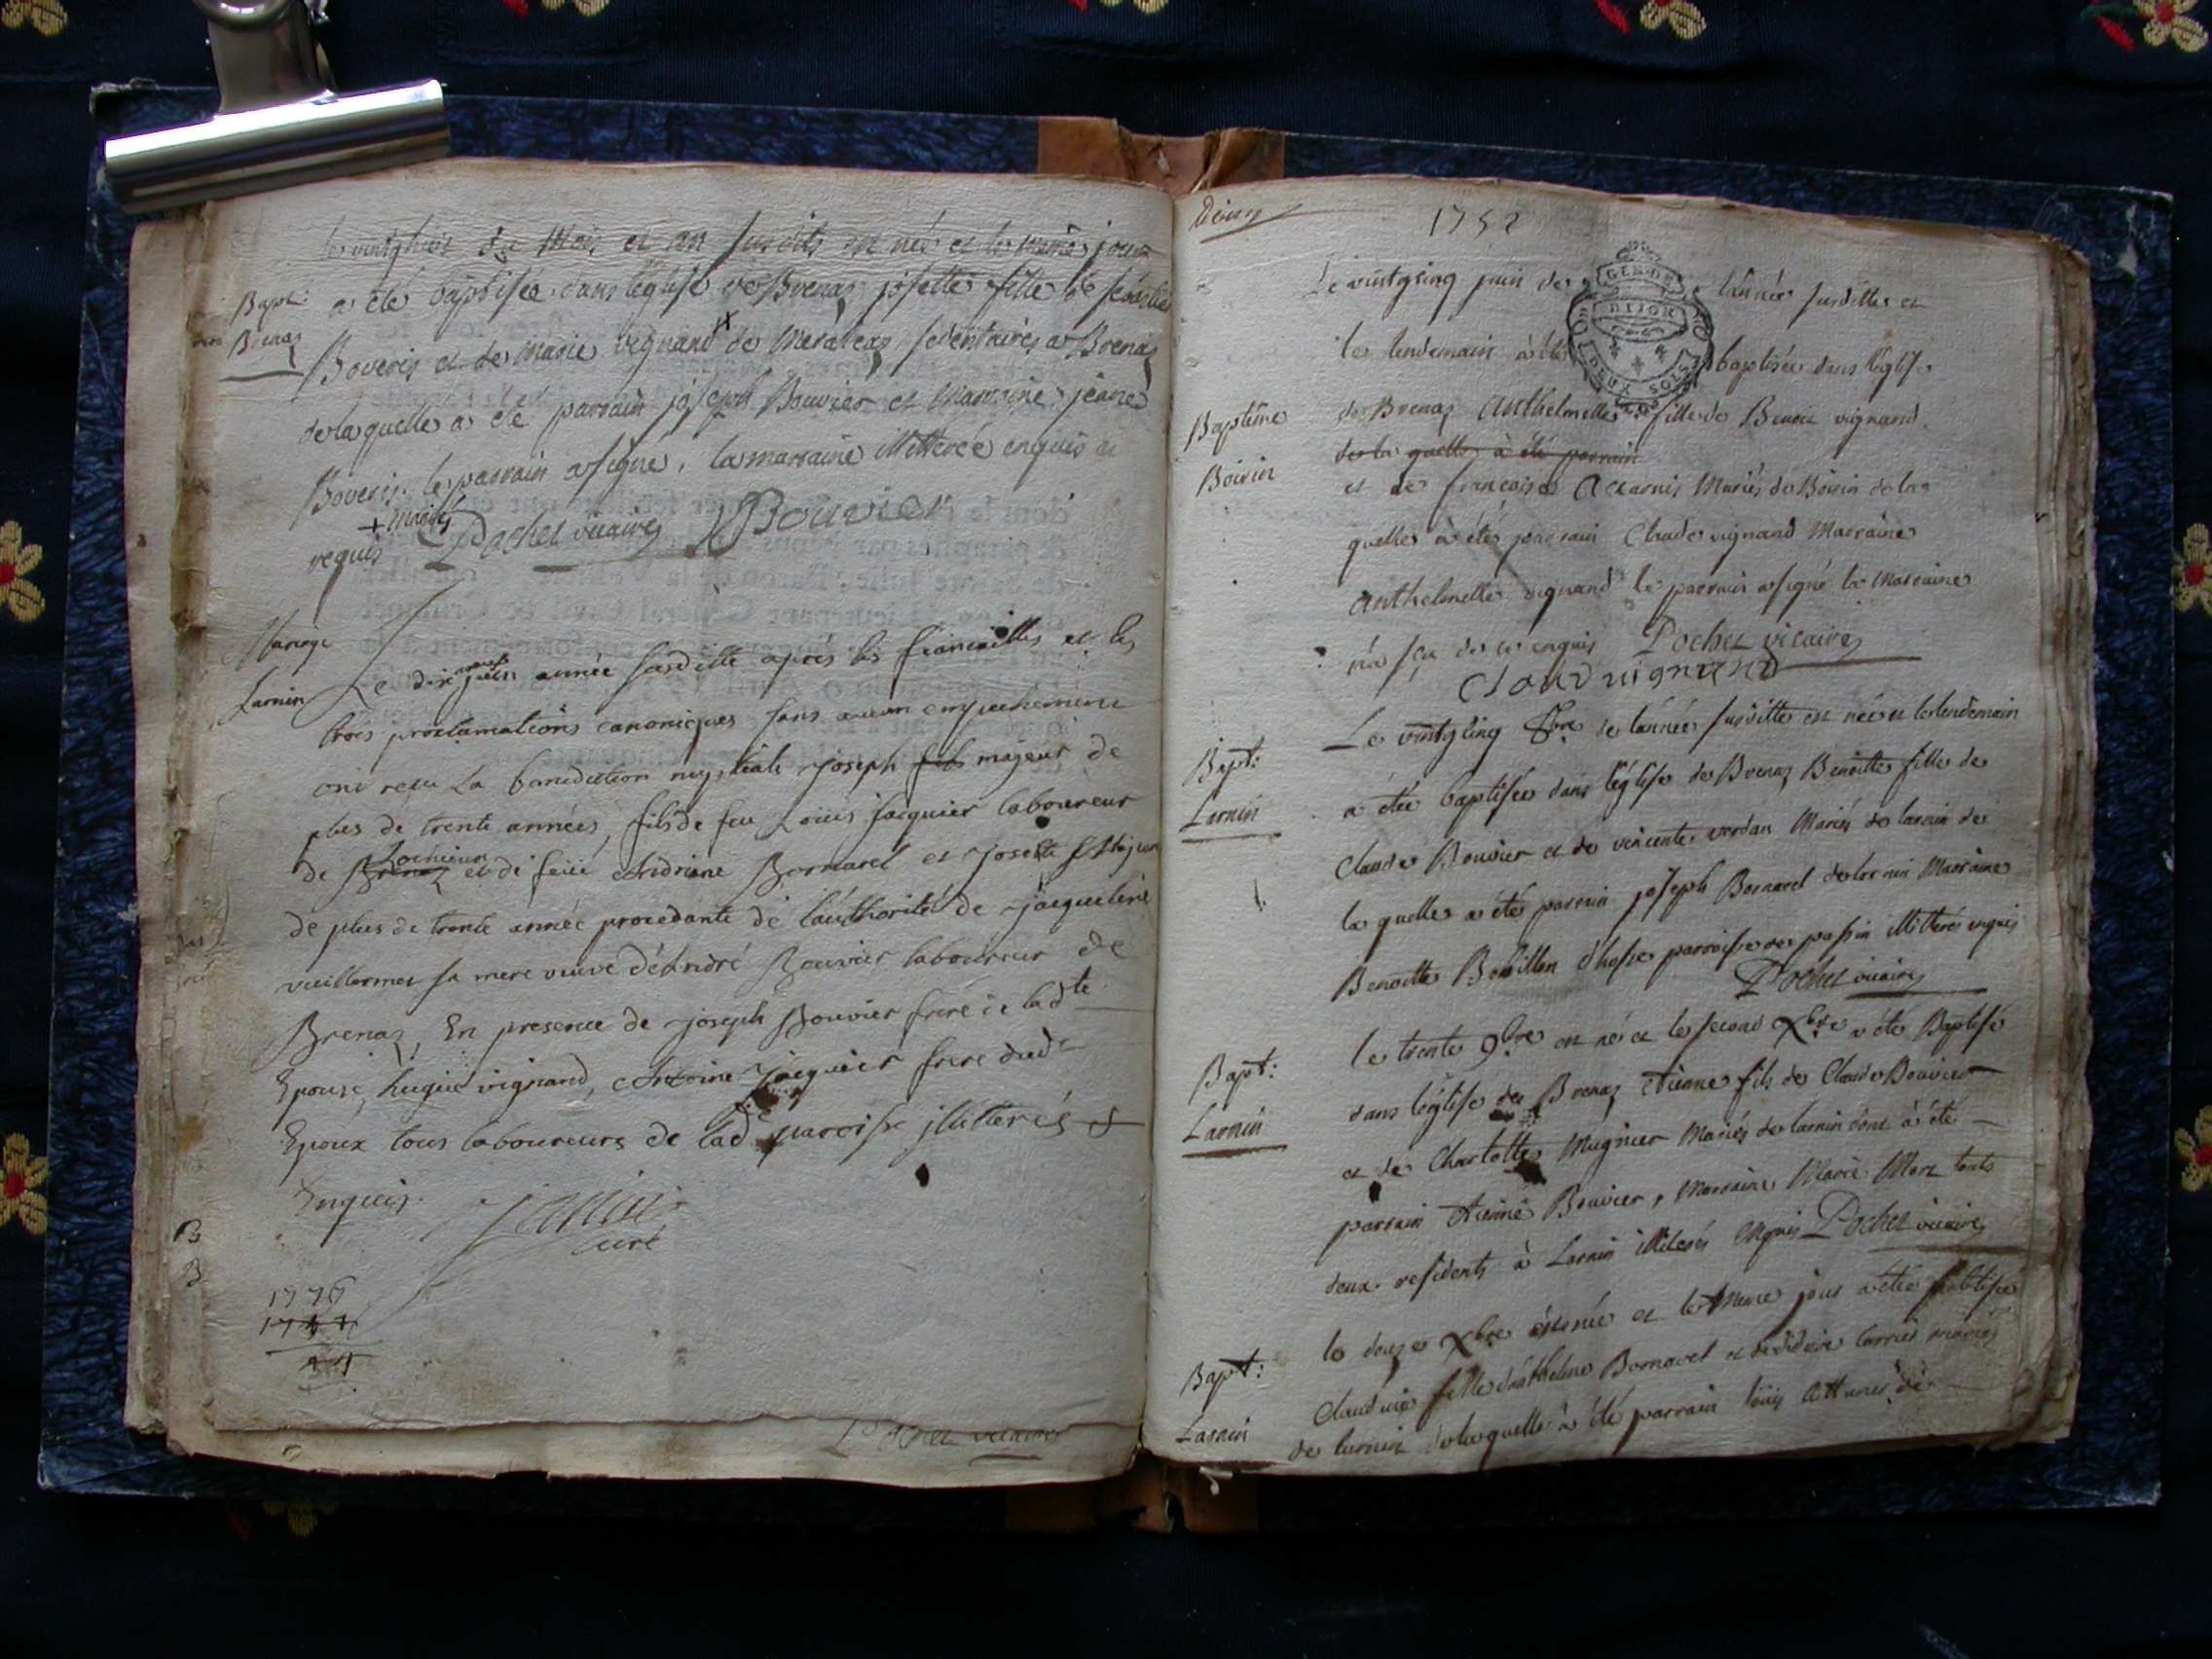 le vintghuit du Mois et an susdits est née et le même jour
Bapt: a été baptisée dans l'église de Brenaz josette fille de
Brenaz
Boveris et de Marie vignand de sedentaires a Brenaz
de laquelle a été parrain joseph Bouvier et Marraine jeane
Boveris. le parrain a signé, la marraine illitterée enquis et
+ Mariés
requis Pochet vicaire J Bouvier
Mariage
Larnin
Le dix juin année susditte après les fiancailles et les
trois proclamations canoniques sans aucun empechement
ont recu La benediction nuptiale joseph fils majeur de
plus de trente années, fils de feu Louis jacquier laboureur
de Brenaz et de feüe Andriane Bornarel et josette
de plus de trente année procedante de l'authorité de jacqueline
vuillermet sa mere veuve d'André Bouvier laboureur de
Brenaz, En presence de joseph Bouvier frere de ladte
Epouse, hugue vignand, Antoine jacquier frere dudt
Epoux tous laboureurs de lad paroisse illitterés &
Enquis.
curé
B
B
1776
Pochet vicaire
1752
Le vintgsinq juin de l'année susditte et
le lendemain à été baptisée dans l'église
Baptême
Boirin
de Brenaz Anthelmette fille de Benoit vignand
de la quelle à été parrain
et de francoise Mariés de Boirin de la
quelle à étés parrain Claude vignand Marraine
Anthelmette vignand le parrain a signé la Marraine
n'a sçu de ce enquis Pochet vicaire
Claud vignend
Bapt:
Larnin
Le vintgsing 8bre de l'année susditte est née et le lendemain
a étée baptisée dans l'église de Brenaz Benoitte fille de
Claude Bouvier et de vincente verdan Mariés de larnin de
la quelle a étés parrain joseph Bornarel de larnin Marraine
Benoitte Bouillon d'hosse parroisse de passin illitterés enquis
Pochet vicaire
Bapt:
Larnin
le trente 9bre est né et le second Xbre a été Baptisé
dans l'église de Brenaz Etienne fils de Claude Bouvier
et de Charlotte Mugnier Mariés de larnin dont à été
parrain Etienne Bouvier, Marraine Marie Mort touts
deux residents à Larnin illiterés enquis Pochet vicaire
Bapt:
Larnin
le douze Xbre est née et le Meme jour a été Babtisée
Claudine fille d'anthelme Bornarel et de mariés
de larnin de laquelle à été parrain loüis